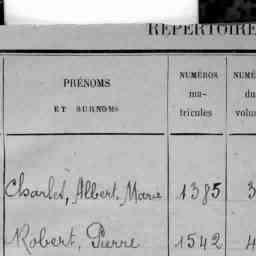 RÉPERTOIRE
PRÉNOMS
ET SURNOMS
NUMÉROS
ma-
tricules
NUMÉ
du
volu
Charles, Albert, Marie 1385 3
Robert, Pierre 1542 4